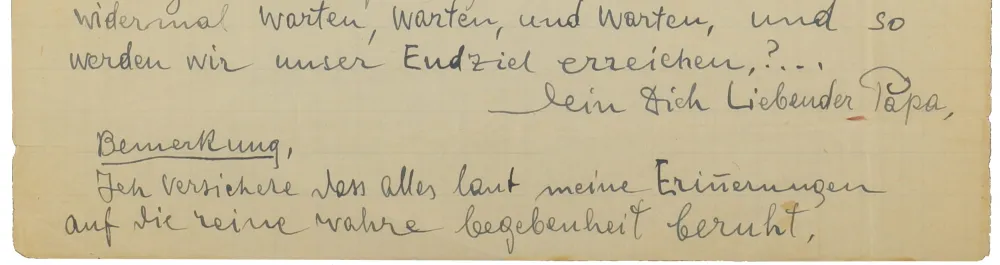 widermal warten, warten, und warten, und so
werden wir unser Endziel erreichen,?...
Dein Dich Liebender Papa,
Bemerkung,
Ich versichere dass alles laut meine Erinnerungen
auf die reine wahre begebenheit beruht,